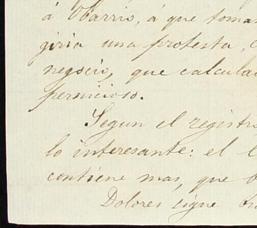 á Obarrio, á que tomas
giria una protesta, c
negocio, que calcula
pernicioso.
Segun el registro
lo interesante: el l
contiene mas, que
Dolores sigue